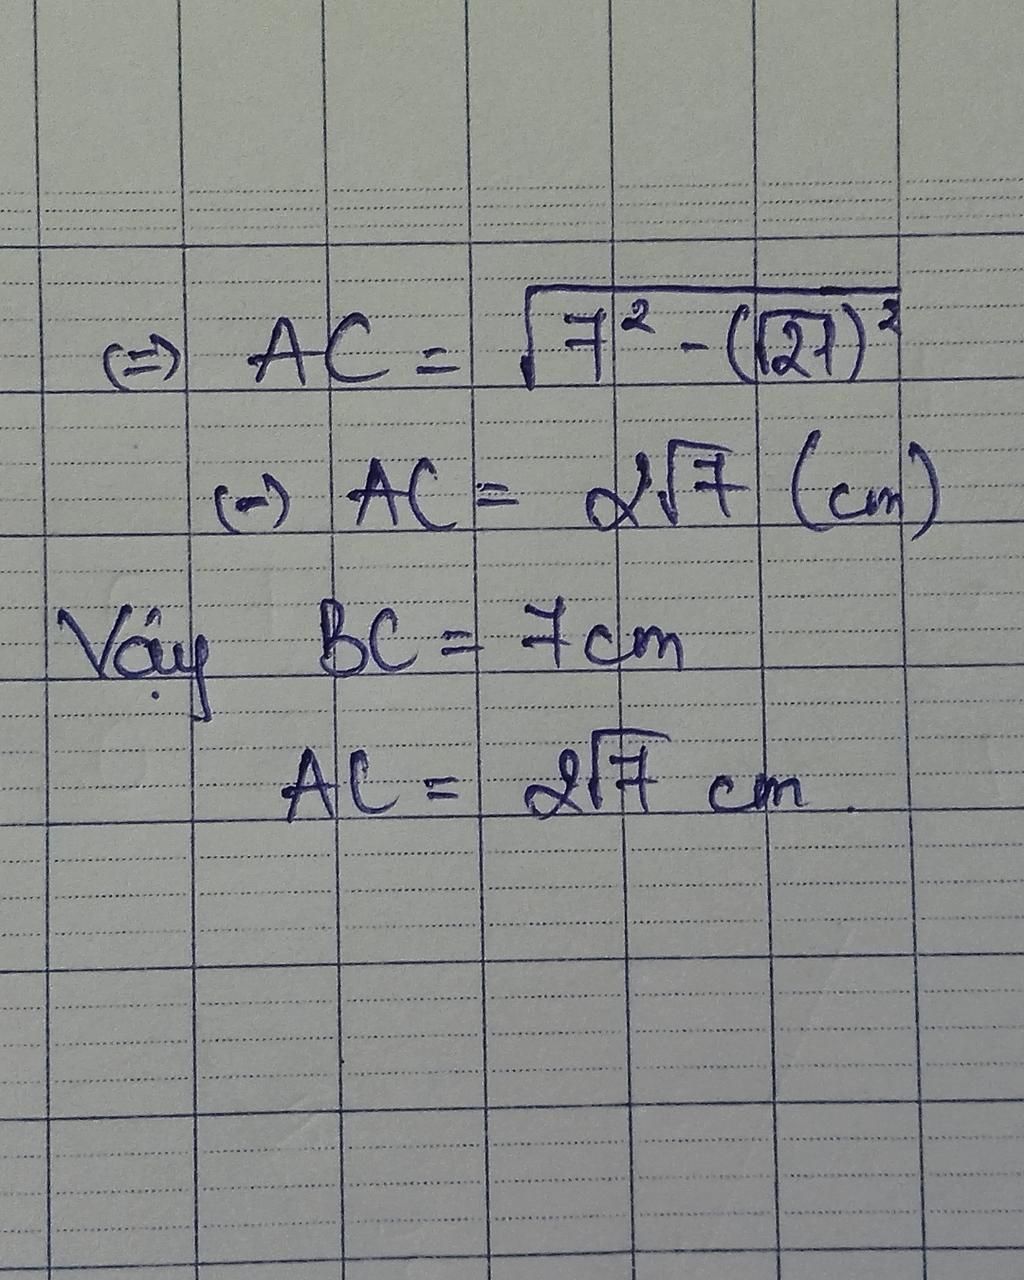 (=) AC = √(7² - (√21)²)
(=) AC = 2√7 (cm)
Vậy BC = 7cm
AC = 2√7 cm.